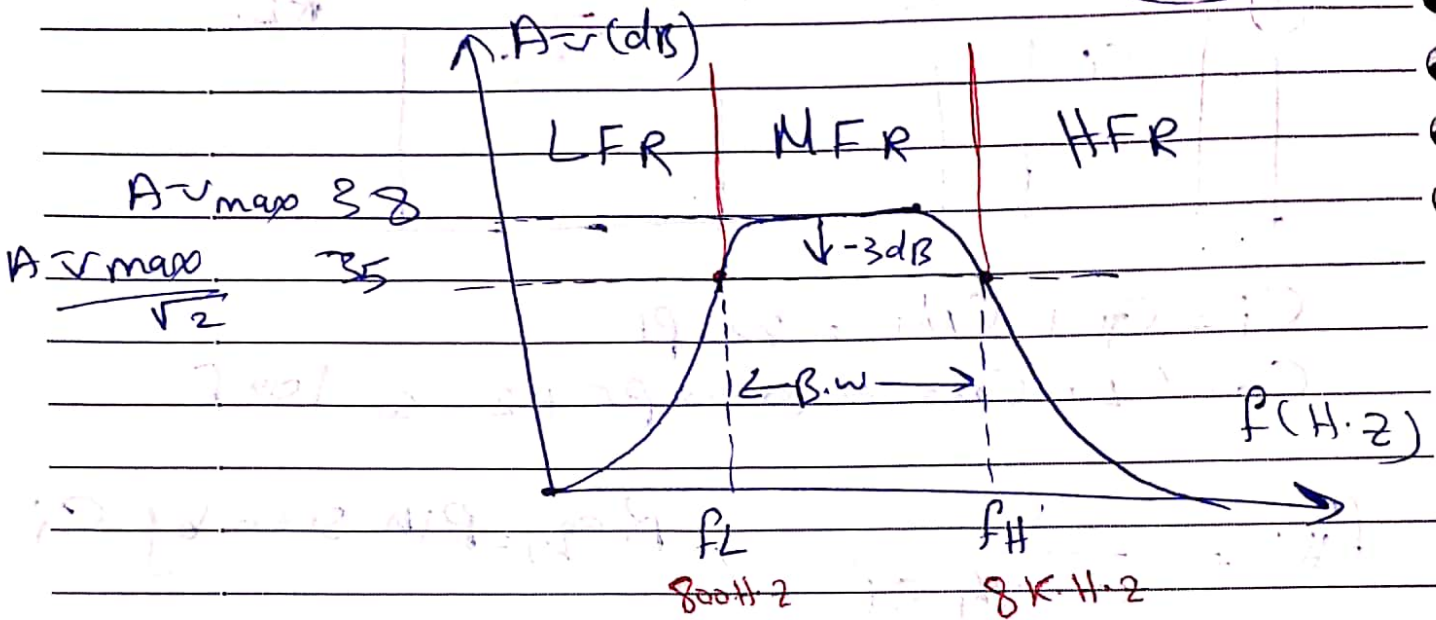 Av (dB)
LFR MFR HFR
Avmax 38
↓-3dB
Avmax/√2 35
←B.W→
f(H.z)
fL fH
800H.z 8K.H.z